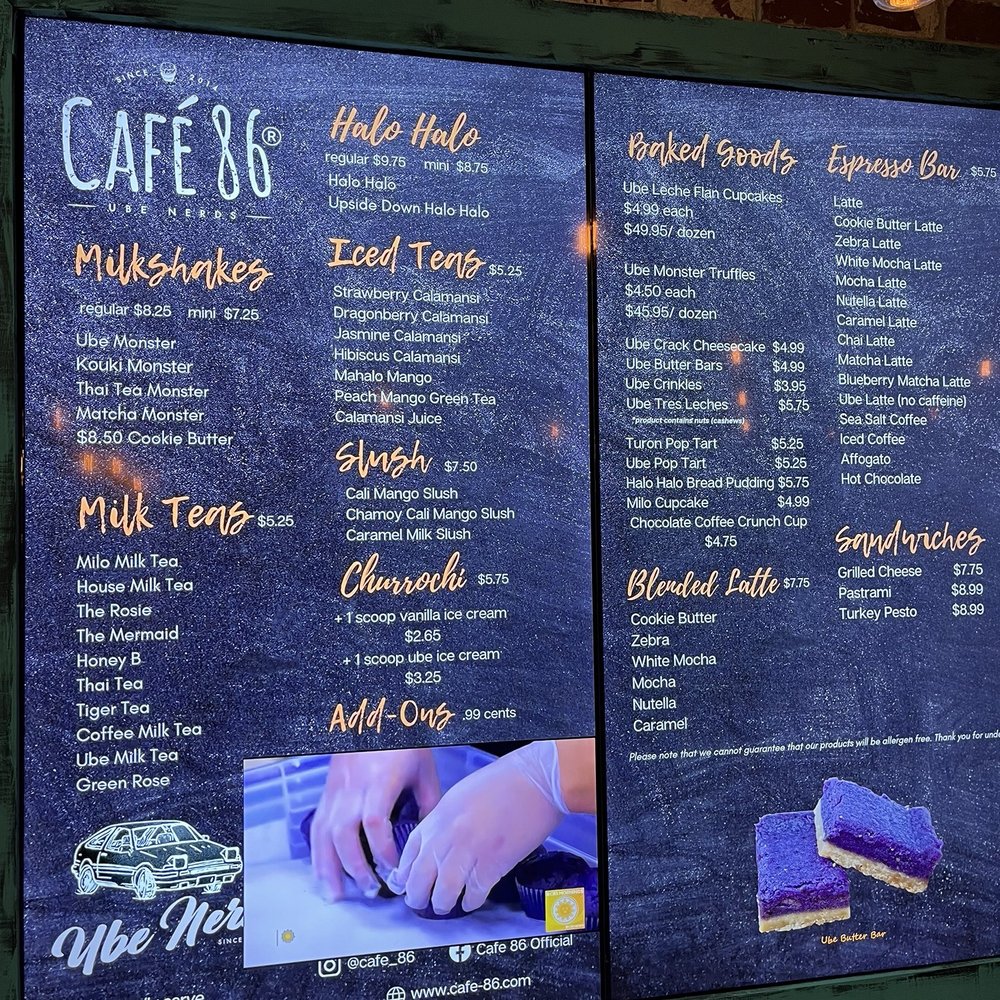 SINCE 2014
CAFÉ 86®
UBE NERDS
Milkshakes
regular $8.25 mini $7.25
Ube Monster
Kouki Monster
Thai Tea Monster
Matcha Monster
$8.50 Cookie Butter
Milk Teas $5.25
Milo Milk Tea
House Milk Tea
The Rosie
The Mermaid
Honey B
Thai Tea
Tiger Tea
Coffee Milk Tea
Ube Milk Tea
Green Rose
Ube Ner
SINCE
Halo Halo
regular $9.75 mini $8.75
Halo Halo
Upside Down Halo Halo
Iced Teas $5.25
Strawberry Calamansi
Dragonberry Calamansi
Jasmine Calamansi
Hibiscus Calamansi
Mahalo Mango
Peach Mango Green Tea
Calamansi Juice
Slush $7.50
Cali Mango Slush
Chamoy Cali Mango Slush
Caramel Milk Slush
Churrochi $5.75
+ 1 scoop vanilla ice cream
$2.65
+ 1 scoop ube ice cream
$3.25
Add-Ons .99 cents
@cafe_86 Cafe 86 Official
www.cafe-86.com
Baked Goods
Ube Leche Flan Cupcakes
$4.99 each
$49.95/ dozen
Ube Monster Truffles
$4.50 each
$45.95/ dozen
Ube Crack Cheesecake $4.99
Ube Butter Bars $4.99
Ube Crinkles $3.95
Ube Tres Leches $5.75
*product contains nuts (cashews)
Turon Pop Tart $5.25
Ube Pop Tart $5.25
Halo Halo Bread Pudding $5.75
Milo Cupcake $4.99
Chocolate Coffee Crunch Cup
$4.75
Blended Latte $7.75
Cookie Butter
Zebra
White Mocha
Mocha
Nutella
Caramel
Espresso Bar $5.75
Latte
Cookie Butter Latte
Zebra Latte
White Mocha Latte
Mocha Latte
Nutella Latte
Caramel Latte
Chai Latte
Matcha Latte
Blueberry Matcha Latte
Ube Latte (no caffeine)
Sea Salt Coffee
Iced Coffee
Affogato
Hot Chocolate
Sandwiches
Grilled Cheese $7.75
Pastrami $8.99
Turkey Pesto $8.99
Please note that we cannot guarantee that our products will be allergen free. Thank you for unde
Ube Butter Bar